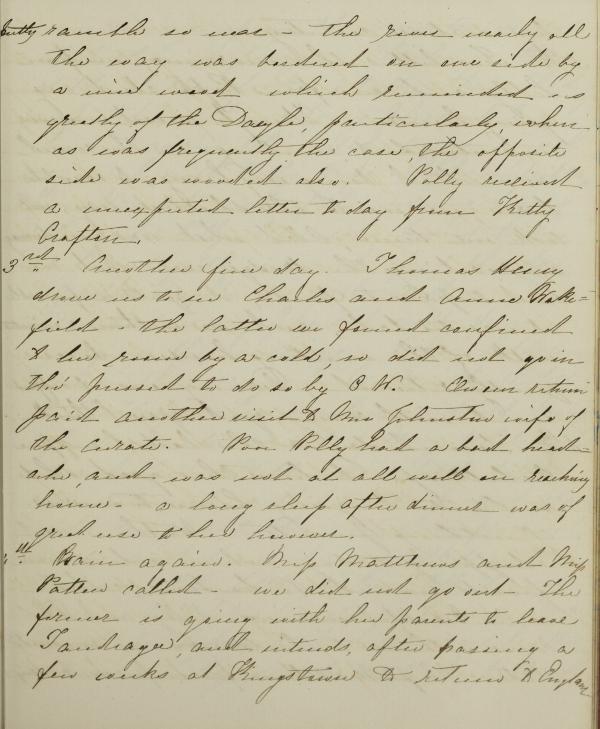 pretty ramble so near - the river nearly all
the way was bordered on one side by
a nice wood which reminded us
greatly of the Dargle, particularly, when
as was frequently the case, the opposite
side was wooded also. Polly received
a unexpected letter to day from Kitty
Crofton.
3rd. Another fine day. Thomas Henry
drove us to see Charles and Anne Wake=
field - the latter we found confined
to her room by a cold, so did not go in
tho' pressed to do so by C W. On our return
paid another visit to Mrs Johnston wife of
the curate. Poor Polly had a bad head=
ache, and was not at all well on reaching
home - a long sleep after dinner was of
great use to her however.
4th. Rain again. Miss Matthews and Miss
Patten called - we did not go out - The
former is going with her parents to leave
Tandragee, and intends, after passing a
few weeks at Kingstown to return to England